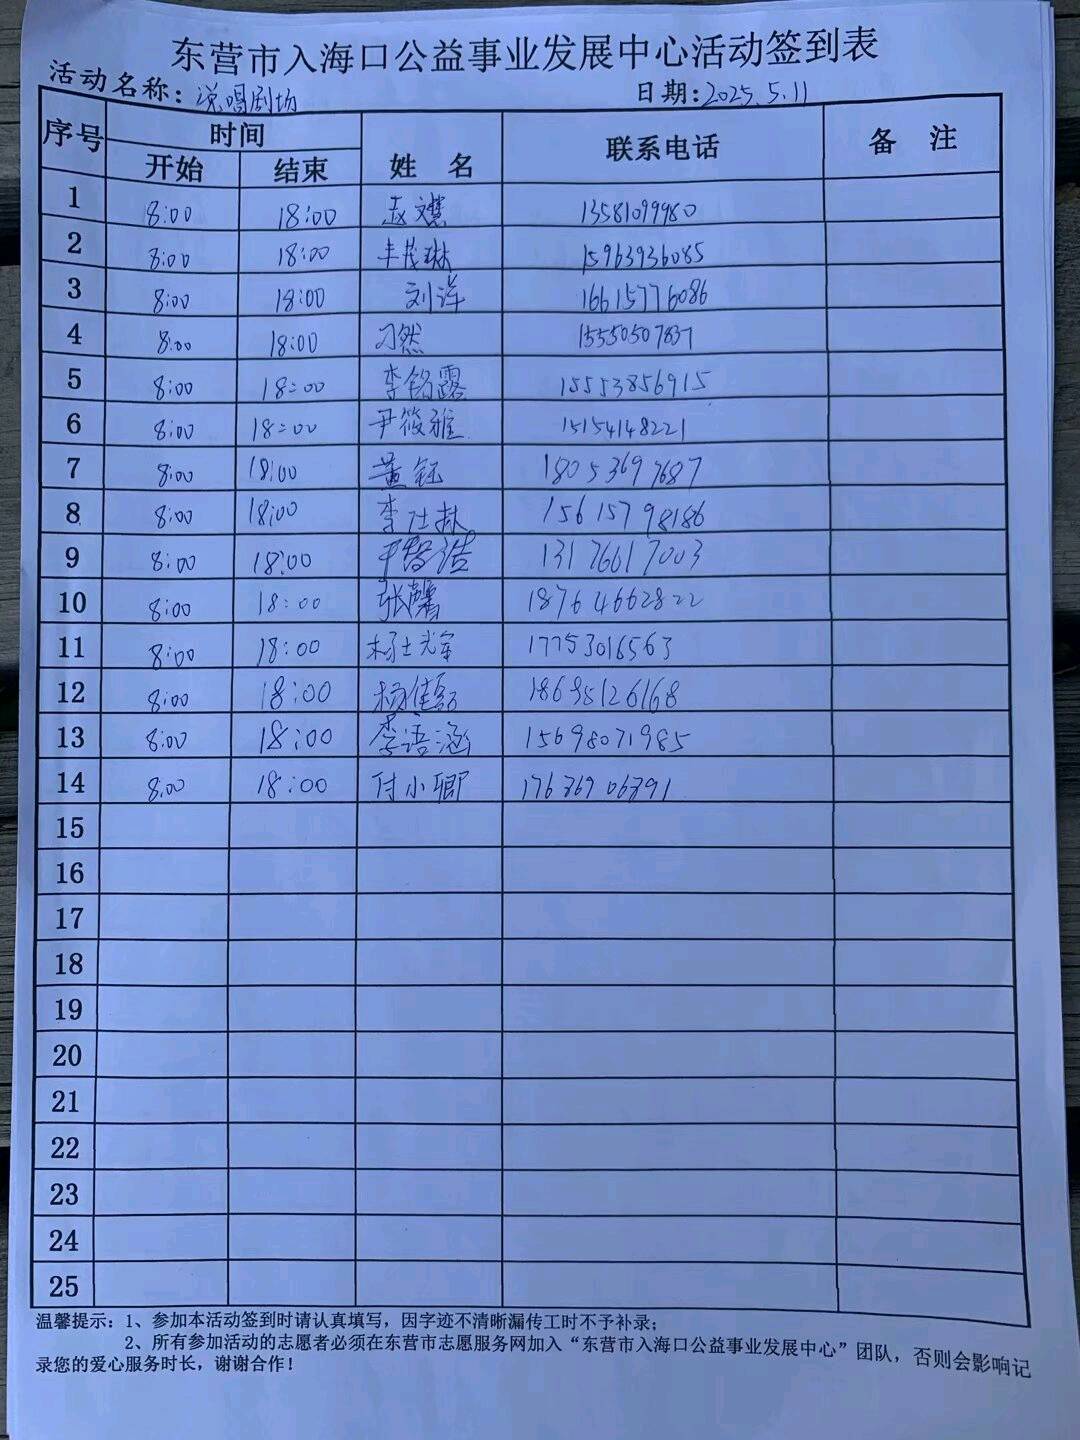 东营市入海口公益事业发展中心活动签到表
活动名称：说唱剧场 日期：2025.5.11
序号 时间 姓 名 联系电话 备 注
开始 结束
1 8:00 18:00 赵文慧 13581099980
2 8:00 18:00 丰茂琳 15963936085
3 8:00 18:00 刘洋 16615776086
4 8:00 18:00 刁然 15550507837
5 8:00 18:00 李铭露 15553856915
6 8:00 18:00 尹筱雅 15154148221
7 8:00 18:00 黄钰 18053697687
8 8:00 18:00 李仕赫 15615798186
9 8:00 18:00 尹智浩 13176617003
10 8:00 18:00 张馨 18764662822
11 8:00 18:00 杨士光军 17753016563
12 8:00 18:00 杨佳 
13 8:00 18:00 李语涵 15698071985
14 8:00 18:00 付小卿 17686906891
15
16
17
18
19
20
21
22
23
24
25
温馨提示：1、参加本活动签到时请认真填写，因字迹不清晰漏传工时不予补录；
2、所有参加活动的志愿者必须在东营市志愿服务网加入“东营市入海口公益事业发展中心”团队，否则会影响记
录您的爱心服务时长，谢谢合作！